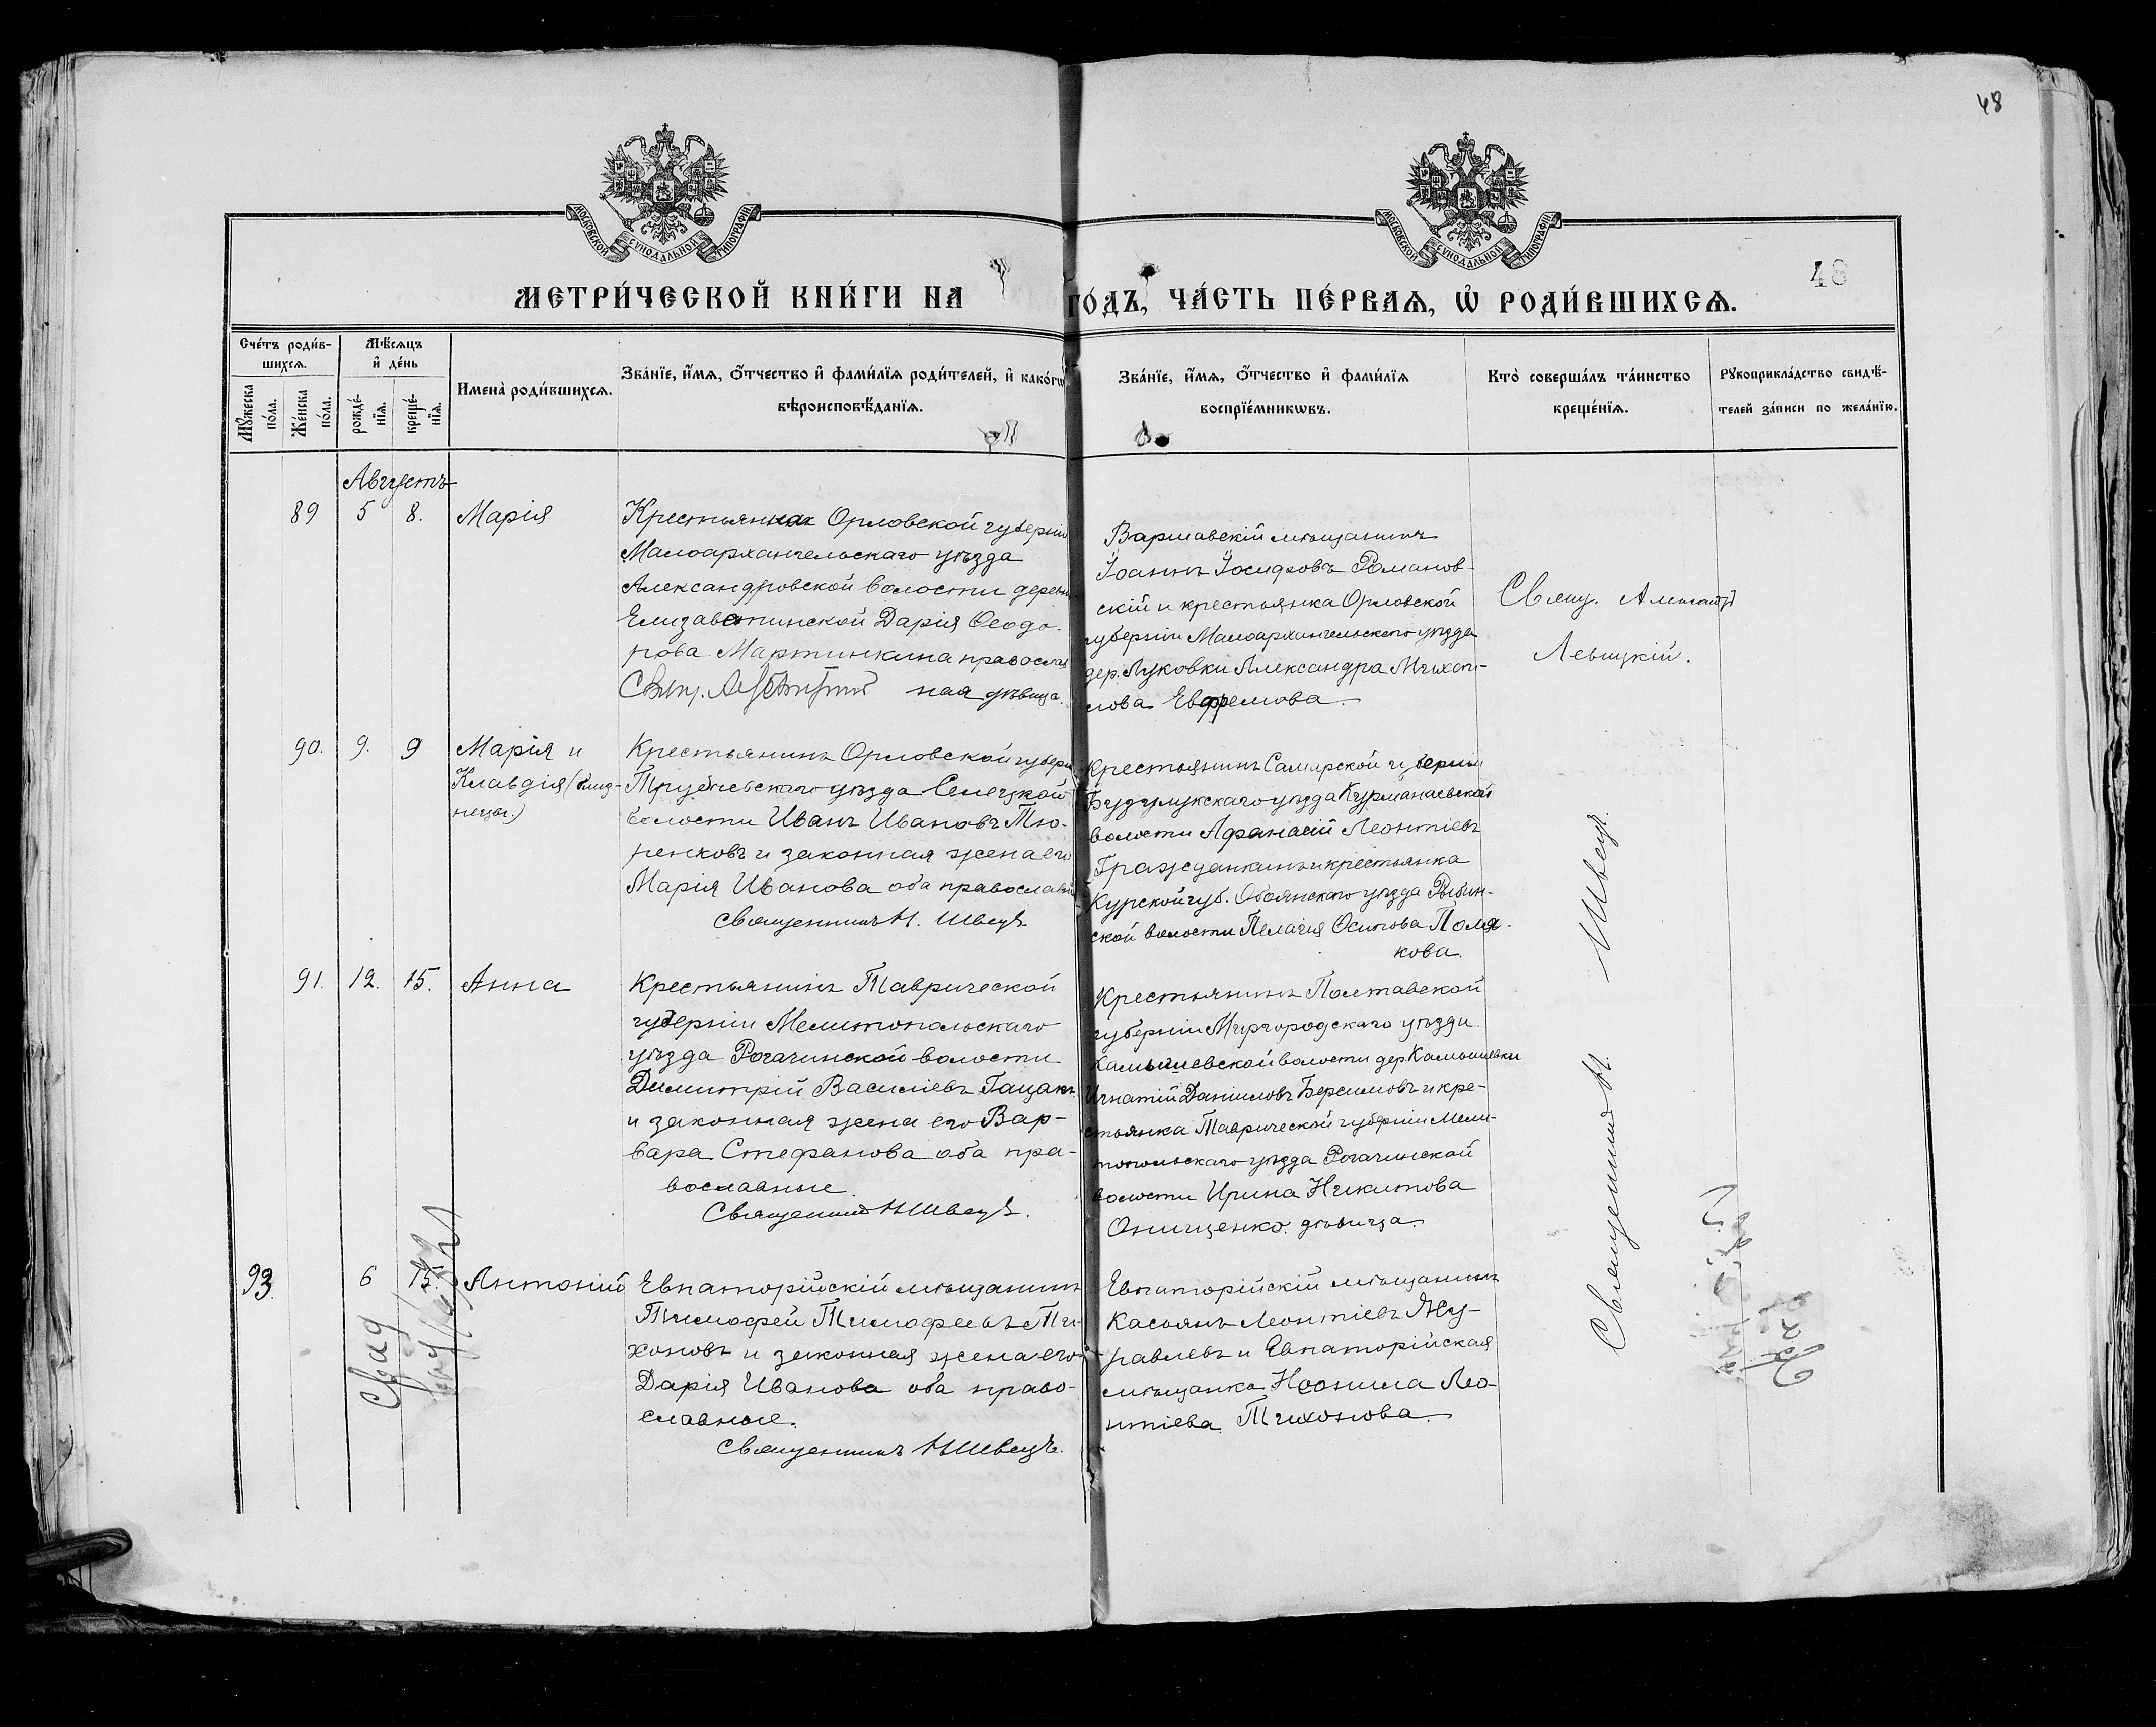 48
МОСКОВСКОЙ СѴНОДАЛЬНОЙ ТИПОГРАФІИ
МОСКОВСКОЙ СѴНОДАЛЬНОЙ ТИПОГРАФІИ
48
МЕТРИ́ЧЕСКОЙ КНИ́ГИ НА ГО́ДЪ, ЧА́СТЬ ПЕ́РВАѦ, Ѡ҆ РОДИ́ВШИХСѦ.
Сче́тъ роди́в-
шихсѧ.
Мꙋ́жеска по́ла.
Же́нска по́ла.
Мѣ́сѧцъ
и҆ де́нь
рожде́-
нїѧ.
креще́-
нїѧ.
Имена̀ роди́вшихсѧ.
Зва́нїе, и҆́мѧ, ѻ҆́тчество и҆ фами́лїѧ роди́телей, и҆ како́гѡ
вѣроисповѣ́данїѧ.
Зва́нїе, и҆́мѧ, ѻ҆́тчество и҆ фами́лїѧ
воспрїе́мникѡвъ.
Кто̀ соверша́лъ та́инство
креще́нїѧ.
Рꙋкоприкла́дство свидѣ́-
телей за́писи по жела́нїю.
Августъ
89 5 8. Марія
Крестьянка Орловской губерніи
Малоархангельскаго уѣзда
Александровской волости деревни
Елизаветинской Дарія Ѳеодо-
рова Мартинкина православ
ная дѣвица.
Варшавскій мѣщанинъ
Іоаннъ Іосифовъ Романов-
скій и крестьянка Орловской
губерніи Малоархангельскаго уѣзда
дер. Луковки Александра Михаи-
лова Ефремова.
Свящ. Александръ
Левицкій.
90. 9. 9 Марія и
Клавдія (близ-
нецы.)
Крестьянинъ Орловской губерніи
Трубчевскаго уѣзда Селецкой
волости Иванъ Ивановъ Тю-
ренковъ и законная жена его
Марія Иванова оба православны
Священникъ Н. Швецъ.
Крестьянинъ Самарской губерніи
Бузулукскаго уѣзда Курманаевской
волости Афанасій Леонтіевъ
Гражданкинъ и крестьянка
Курской губ. Обоянскаго уѣзда Рыбин-
ской волости Пелагія Осипова Поля-
кова.
91. 12. 15. Анна
Крестьянинъ Таврической
губерніи Мелитопольскаго
уѣзда Рогачинской волости
Димитрій Василіевъ Гацакъ
и законная жена его Вар-
вара Стефанова оба пра-
вославные
Священникъ Н Швецъ.
Крестьянинъ Полтавской
губерніи Миргородскаго уѣзда
Камышевской волости дер Камышевки
Игнатій Даніиловъ Беримовъ и кре-
стьянка Таврической губерніи Мели-
топольскаго уѣзда Рогачинской
волости Ирина Никитова
Онищенко. дѣвица.
93. 6 15. Антоній
Евпаторійскій мѣщанинъ
Тимофей Тимофеевъ Ти-
хоновъ и законная жена его
Дарія Иванова оба право-
славные.
Священникъ Н Швецъ.
Евпаторійскій мѣщанинъ
Касьянъ Леонтіевъ Жу-
равлевъ и Евпаторійская
мѣщанка Неонила Лео-
нтіева Тихонова.
Священникъ Н. Швецъ.